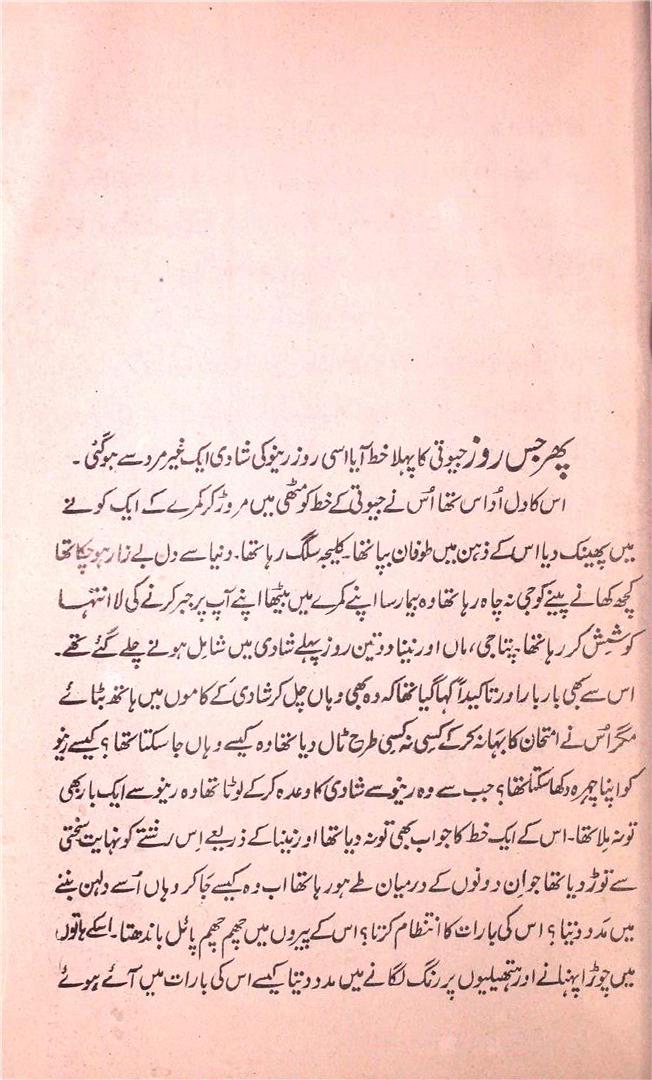 پھر جس روز جیوتی کا پہلا خط آیا اسی روز رینو کی شادی ایک غیر مرد سے ہو گئی ۔
اس کا دل اُداس تھا اُس نے جیوتی کے خط کو مٹھی میں مروڑ کر کمرے کے ایک کونے
میں پھینک دیا اس کے ذہن میں طوفان بپا تھا۔ کلیجہ سلگ رہا تھا۔ دنیا سے دل بے زار ہو چکا تھا
کچھ کھانے پینے کو جی نہ چاہ رہا تھا وہ بیمار سا اپنے کمرے میں بیٹھا اپنے آپ پر جبر کرنے کی لا انتہا
کوشش کر رہا تھا۔ پتا جی، ماں اور نینا دو تین روز پہلے شادی میں شامل ہونے چلے گئے تھے۔
اس سے بھی بار بار اور تاکیداً کہا گیا تھا کہ وہ بھی وہاں چل کر شادی کے کاموں میں ہاتھ بٹائے
مگر اُس نے امتحان کا بہانہ کر کے کسی نہ کسی طرح ٹال دیا تھا وہ کیسے وہاں جا سکتا تھا؟ کیسے رینو
کو اپنا چہرہ دکھا سکتا تھا؟ جب سے وہ رینو سے شادی کا وعدہ کر کے لوٹا تھا وہ رینو سے ایک بار بھی
تو نہ ملا تھا۔ اس کے ایک خط کا جواب بھی تو نہ دیا تھا اور نینا کے ذریعے اِس رشتے کو نہایت سختی
سے توڑ دیا تھا جو اِن دونوں کے درمیان طے ہو رہا تھا اب وہ کیسے جا کر وہاں اُسے دلہن بننے
میں مدد دیتا؟ اس کی بارات کا انتظام کرتا؟ اس کے پیروں میں چھم چھم پائل باندھتا۔ اسکے ہاتھوں
میں چوڑا پہنانے اور ہتھیلیوں پر رنگ لگانے میں مدد دیتا کیسے اس کی بارات میں آئے ہوئے